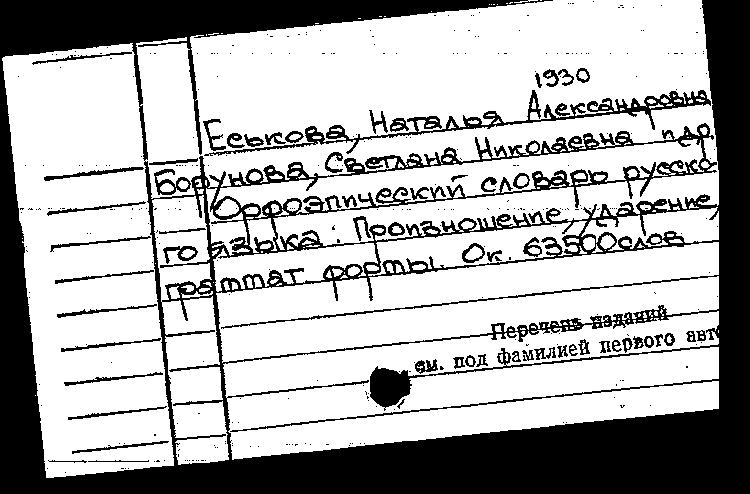 1930
Еськова, Наталья Александровна
Борунова, Светлана Николаевна и др.
Орфоэпический словарь русско-
го языка: Произношение, ударение,
граммат формы. Ок. 63500 слов.
Перечень изданий
см. под фамилией первого авто